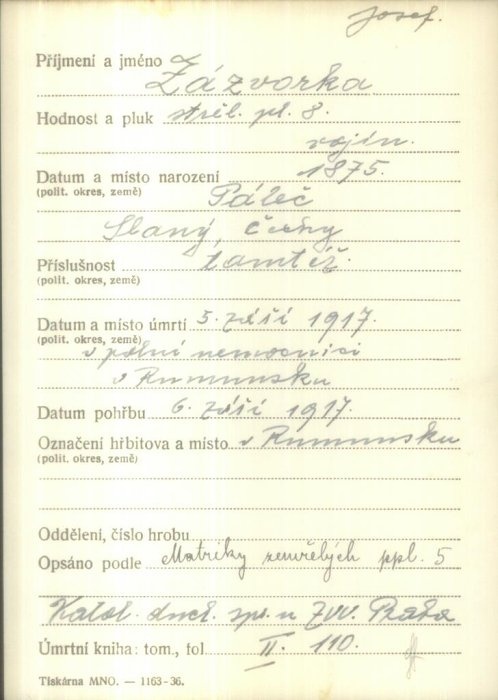 Josef.
Příjmení a jméno Zázvorka
Hodnost a pluk střel. pl. 8.
vojín.
Datum a místo narození 1875.
(polit. okres, země) Páleč
Slaný, Čechy
Příslušnost tamtéž.
(polit. okres, země)
Datum a místo úmrtí 5. září 1917.
(polit. okres, země) v polní nemocnici
v Rumunsku
Datum pohřbu 6. září 1917.
Označení hřbitova a místo v Rumunsku
(polit. okres, země)
Oddělení, číslo hrobu
Opsáno podle Matriky zemřelých ppl. 5
Katol. duch. spr. u ZVV. Praha
Úmrtní kniha: tom., fol. II. 110.
Tiskárna MNO. — 1163-36.